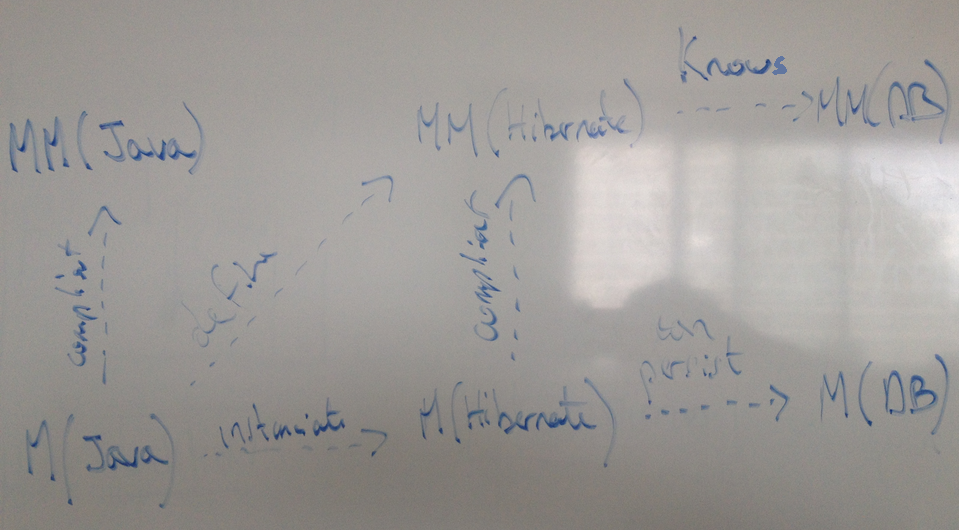 Knows
MM(Java)
MM(Hibernate)
MM(DB)
compliant
define
compliant
can
persist
M(Java)
instanciate
M(Hibernate)
M(DB)